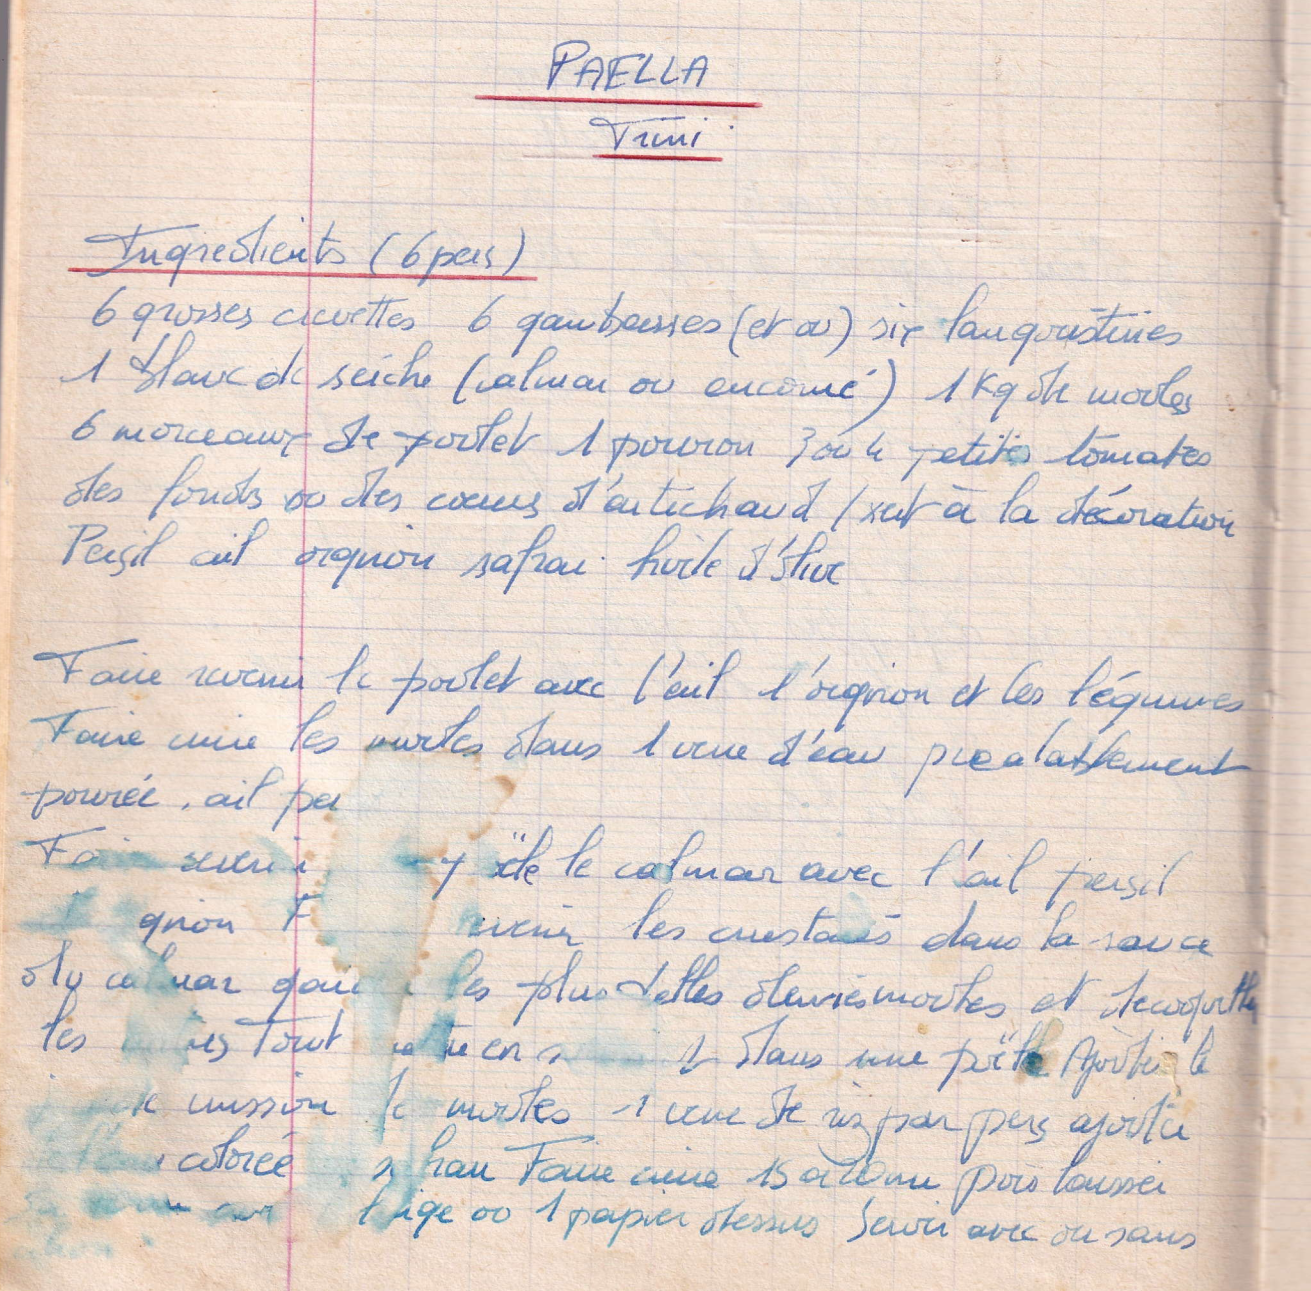 PAELLA
Trini
Ingredients (6 pers)
6 grosses crevettes 6 gambasses (et ou) six langoustines
1 blanc de seiche (calmar ou encorné) 1 Kg de moules
6 morceaux de poulet 1 poivron 3 ou 4 petites tomates
des fonds ou des cœurs d'artichaud (sert à la décoration
Persil ail oignon safran huile d'olive
Faire revenir le poulet avec l'ail l'oignon et les légumes
Faire cuire les moules dans 1 verre d'eau prealablement
poivrée, ail per
Faire revenir le calmar avec l'ail persil
gnon F les crustacés dans la sauce
du calmar les plus belles demies moules et decoquille
les autres Tout dans une poële Ajouter le
cuisson moules 1 verre de riz par pers ajouter
colorée Faire cuire 15 a 20 mn puis laisser
linge ou 1 papier dessus Servir avec ou sans